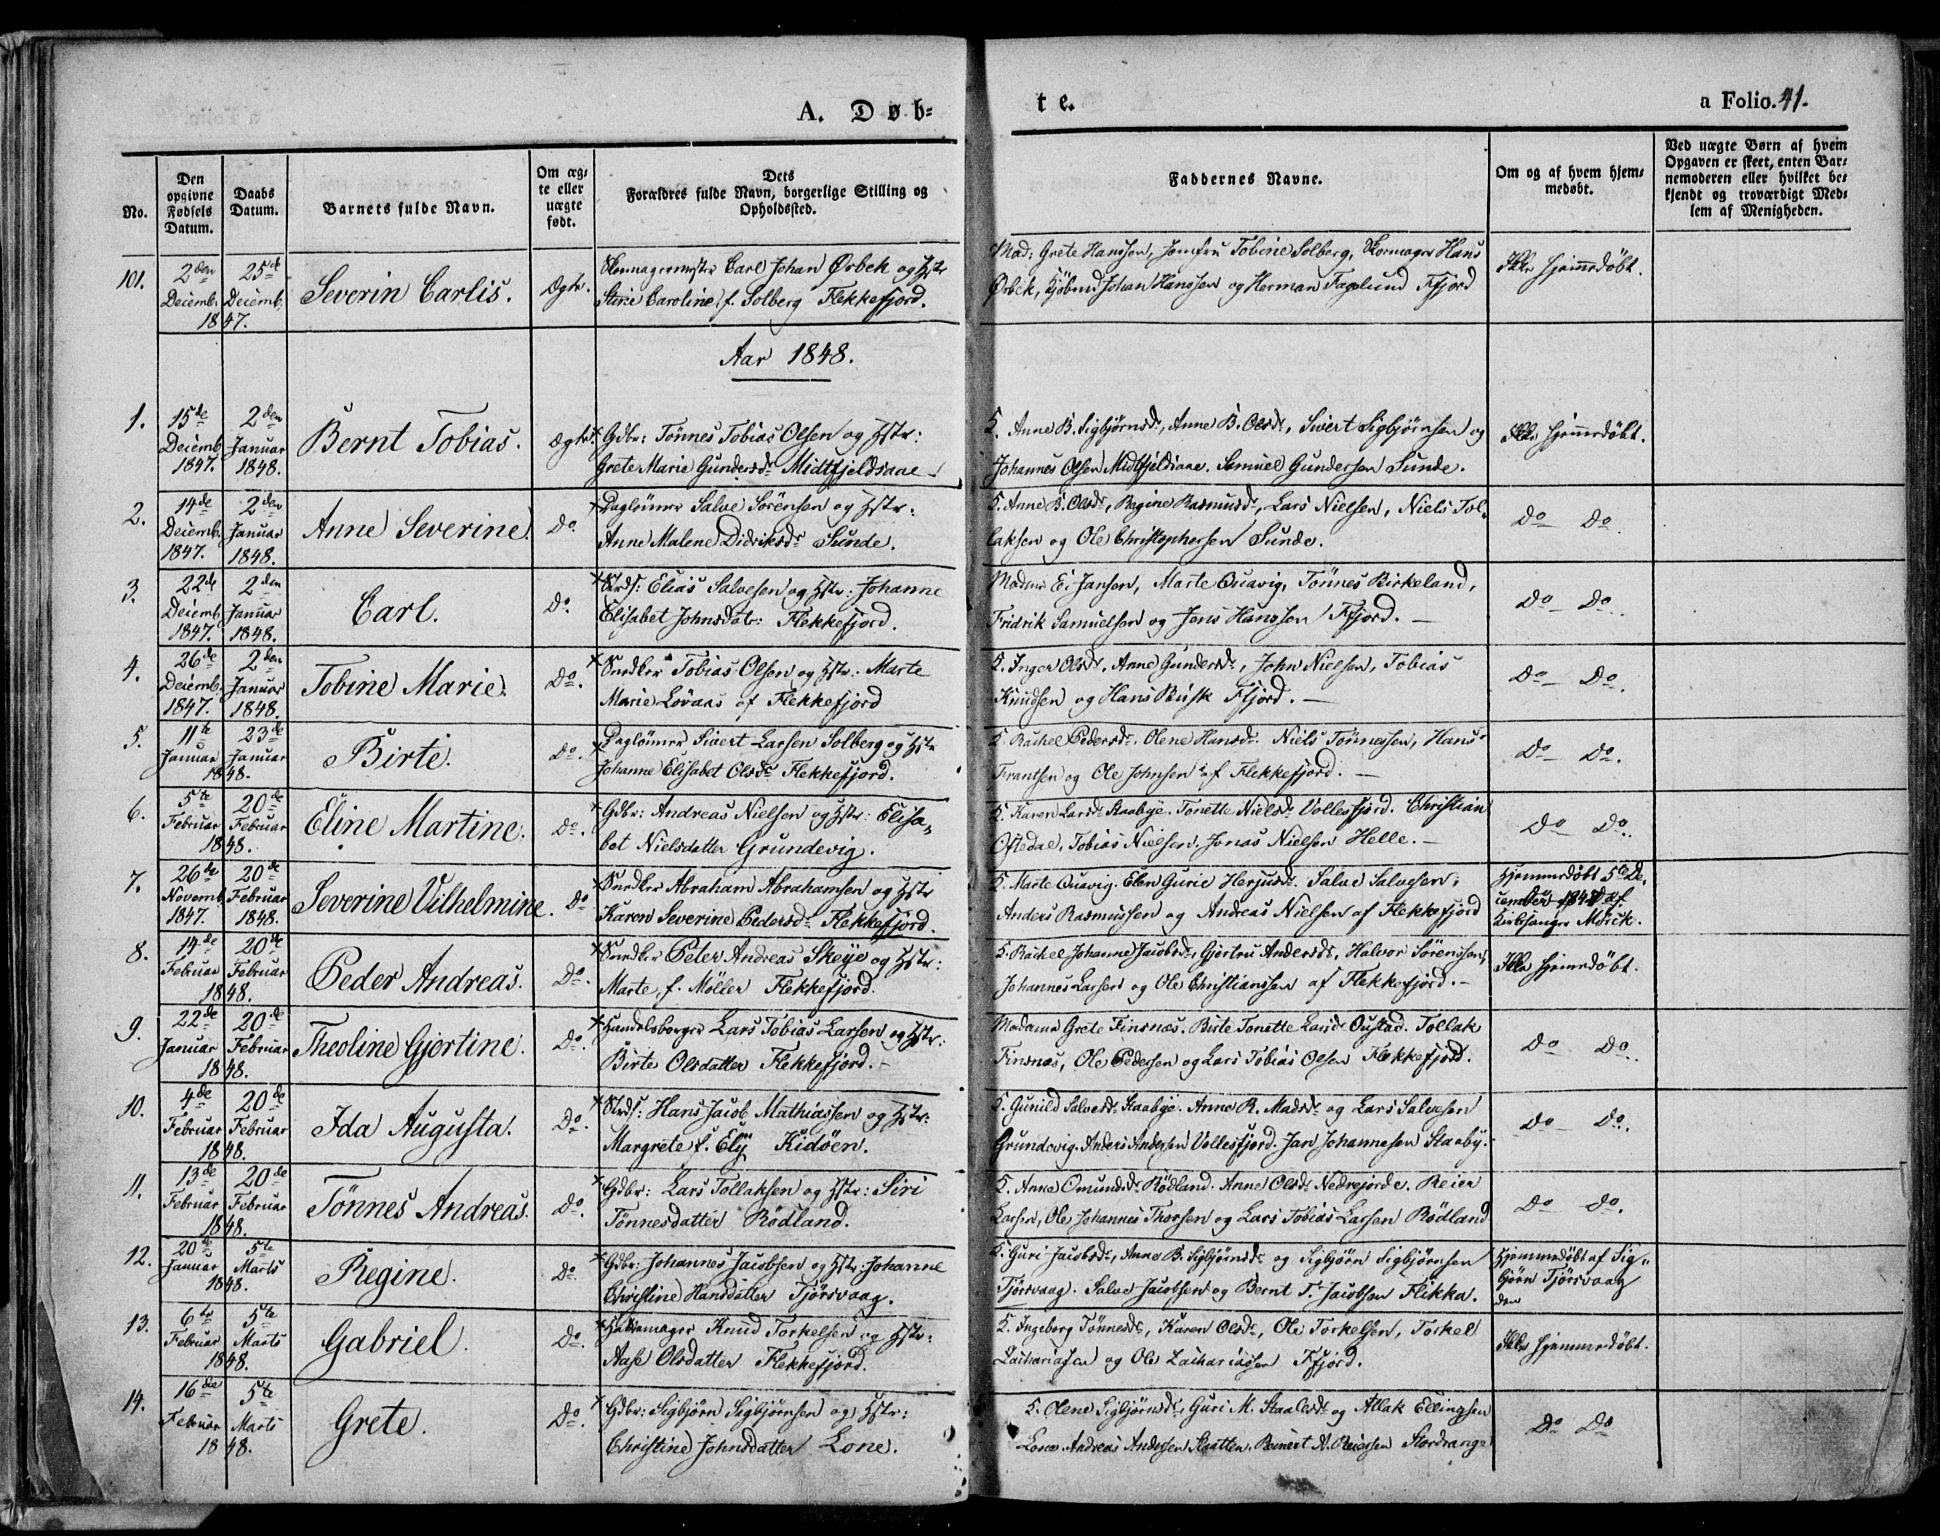 A. Døb=
te.
a Folio. 41.
No.
Den opgivne Fødsels Datum.
Daabs Datum.
Barnets fulde Navn.
Om ægte eller uægte født.
Dets Forældres fulde Navn, borgerlige Stilling og Opholdssted.
Faddernes Navne.
Om og af hvem hjemmedøbt.
Ved uægte Børn af hvem Opgaven er skeet, enten Barnemoderen eller hvilket bekjendt og troværdigt Medlem af Menigheden.
101. 2den Decemb. 25de Decemb. 1847. Severin Carlis. Ægte.
Carl Johan Ørbek og Hstr
Stine Caroline f. Solberg Flekkefjord.
Mad: Grete Hanssen, Jomfru Tobine Solberg, Skomager Hans
Ørbek, Johan Hanssen og Herman Fagelund Ffjord
Ikke hjemmedøbt.
Aar 1848.
1. 15de Decemb. 1847. 2den Januar 1848. Bernt Tobias. Ægte.
Gdbr: Tønnes Tobias Olsen og Hstr:
Grete Marie Gundersdr Midtfjeldsaae
F. Anne B. Sigbjørnsdr, Anne B. Olsdr, Sivert Sigbjørnsen og
Johannes Olsen Midtfjeldsaae. Samuel Gundersen Sunde.
Ikke hjemmedøbt.
2. 14de Decemb. 1847. 2den Januar 1848. Anne Severine. Do.
Daglønner Salve Sørensen og Hstr:
Anne Malene Didriksdr Sunde.
F. Anne B. Olsdr, Regine Rasmusdr, Lars Nielsen, Niels Tol-
laksen og Ole Christophersen Sunde.
Do Do
3. 22de Decemb. 1847. 2den Januar 1848. Carl. Do.
Strds: Elias Salvesen og Hstr: Johanne
Elisabet Johnsdatr: Flekkefjord.
Madme E. Jansen, Marte Quavig, Tønnes Birkeland,
Fridrik Samuelsen og Jens Hanssen Ffjord.
Do Do.
4. 26de Decemb. 1847. 2den Januar 1848. Tobine Marie. Do.
Snedker Tobias Olsen og Hstr: Marte
Marie Lövaas af Flekkefjord
F. Inger Olsdr, Anne Gundersdr, John Nielsen, Tobias
Knudsen og Hans Busk Ffjord.
Do Do.
5. 11te Januar 23de Januar 1848. Birte. Do.
Daglønner Sivert Larsen Solberg og Hstr
Johanne Elisabet Olsdr Flekkefjord.
F. Rachel Pedersdr. Olene Hansdr. Niels Tønnessen, Hans
Frantsen og Ole Johnsen af Flekkefjord.
Do Do.
6. 5te Februar 20de Februar 1848. Eline Martine. Do.
Gdbr: Andreas Nielsen og Hstr: Elisa-
bet Nielsdatter Grundevig.
F. Karen Larsdr Staabye. Tonette Nielsdr Vollesfjord. Christian
Oftedal, Tobias Nielsen. Jonas Nielsen Helle.
Do Do.
7. 26de Novemb. 1847. 20de Februar 1848. Severine Vilhelmine. Do
Snedker Abraham Abrahamsen og Hstr
Karen Severine Pedersdr Flekkefjord.
F. Marte Quavig. Elen Gurie Herjusdr. Salve Salvesen,
Anders Rasmussen og Andreas Nielsen af Flekkefjord
Hjemmedøbt 5te De-
cember 1847 af
Kirkesanger Mörck.
8. 14de Februar 20de Februar 1848. Peder Andreas. Do.
Snedker Peter Andreas Skeye og Hstr:
Marte, f. Möller Flekkefjord.
F. Rachel Johanne Jacobsdr, Gjertru Andersdr, Halvor Sörenssen,
Johannes Larsen og Ole Christianssen af Flekkefjord.
Ikke hjemmedøbt.
9. 22de Januar 20de Februar 1848. Theoline Gjertine. Do.
Handelsborger Lars Tobias Larsen og Hstr:
Birte Olsdatter Flekkefjord.
Madame Grete Finsnæs. Birte Tonette Larsdr Oustad. Tollak
Finsnæs, Ole Pedersen og Lars Tobias Olsen Flekkefjord.
Do Do.
10. 4de Februar 20de Februar 1848. Ida Augusta. Do.
Strds: Hans Jacob Mathiassen og Hstr:
Margrete f. Ely Kidöen.
F. Gunild Salvesdr Staabye. Anne R. Madsdr og Lars Salvesen
Grundevig. Anders Andersen Vollesfjord. Jan Johannesen Staaby.
Do Do.
11. 13de Februar 20de Februar 1848. Tönnes Andreas. Do.
Gdbr: Lars Tollaksen og Hstr: Siri
Tönnesdatter Rödland.
F. Anne Omundsdr Rödland. Anne Olsdr Nedrejorde. Reier
Larsen, Ole Johannes Thorsen og Lars Tobias Larsen Rödland
Do Do.
12. 20de Januar 5te Marts 1848. Regine. Do.
Gdbr: Johannes Jacobsen og Hstr: Johanne
Christine Hansdatter Tjörsvaag.
F. Guri Jacobsdr, Anne B. Sigbjörnsdr og Sigbjörn Sigbjörnsen
Tjörsvaag. Salve Jacobsen og Bernt T. Jacobsen Flikka.
Hjemmedøbt af Sig-
björn Tjörsvaag
den
13. 6te Februar 5te Marts 1848. Gabriel. Do.
Knud Torkelsen og Hstr:
Aase Olsdatter Flekkefjord.
F. Ingeborg Tönnesdr, Karen Olsdr, Ole Torkelsen, Torkel
Zachariasen og Ole Zachariassen Ffjord.
Ikke hjemmedøbt.
14. 16de Februar 5te Marts 1848. Grete. Do.
Gdbr: Sigbjörn Sigbjörnsen og Hstr:
Christine Johnsdatter Lone.
F. Olene Sigbjörnsdr, Guri M. Staalesdr og Atlak Ellingsen
Lone. Andreas Andersen Slatten. Reinert A. Reiersen Stordrange
Do Do